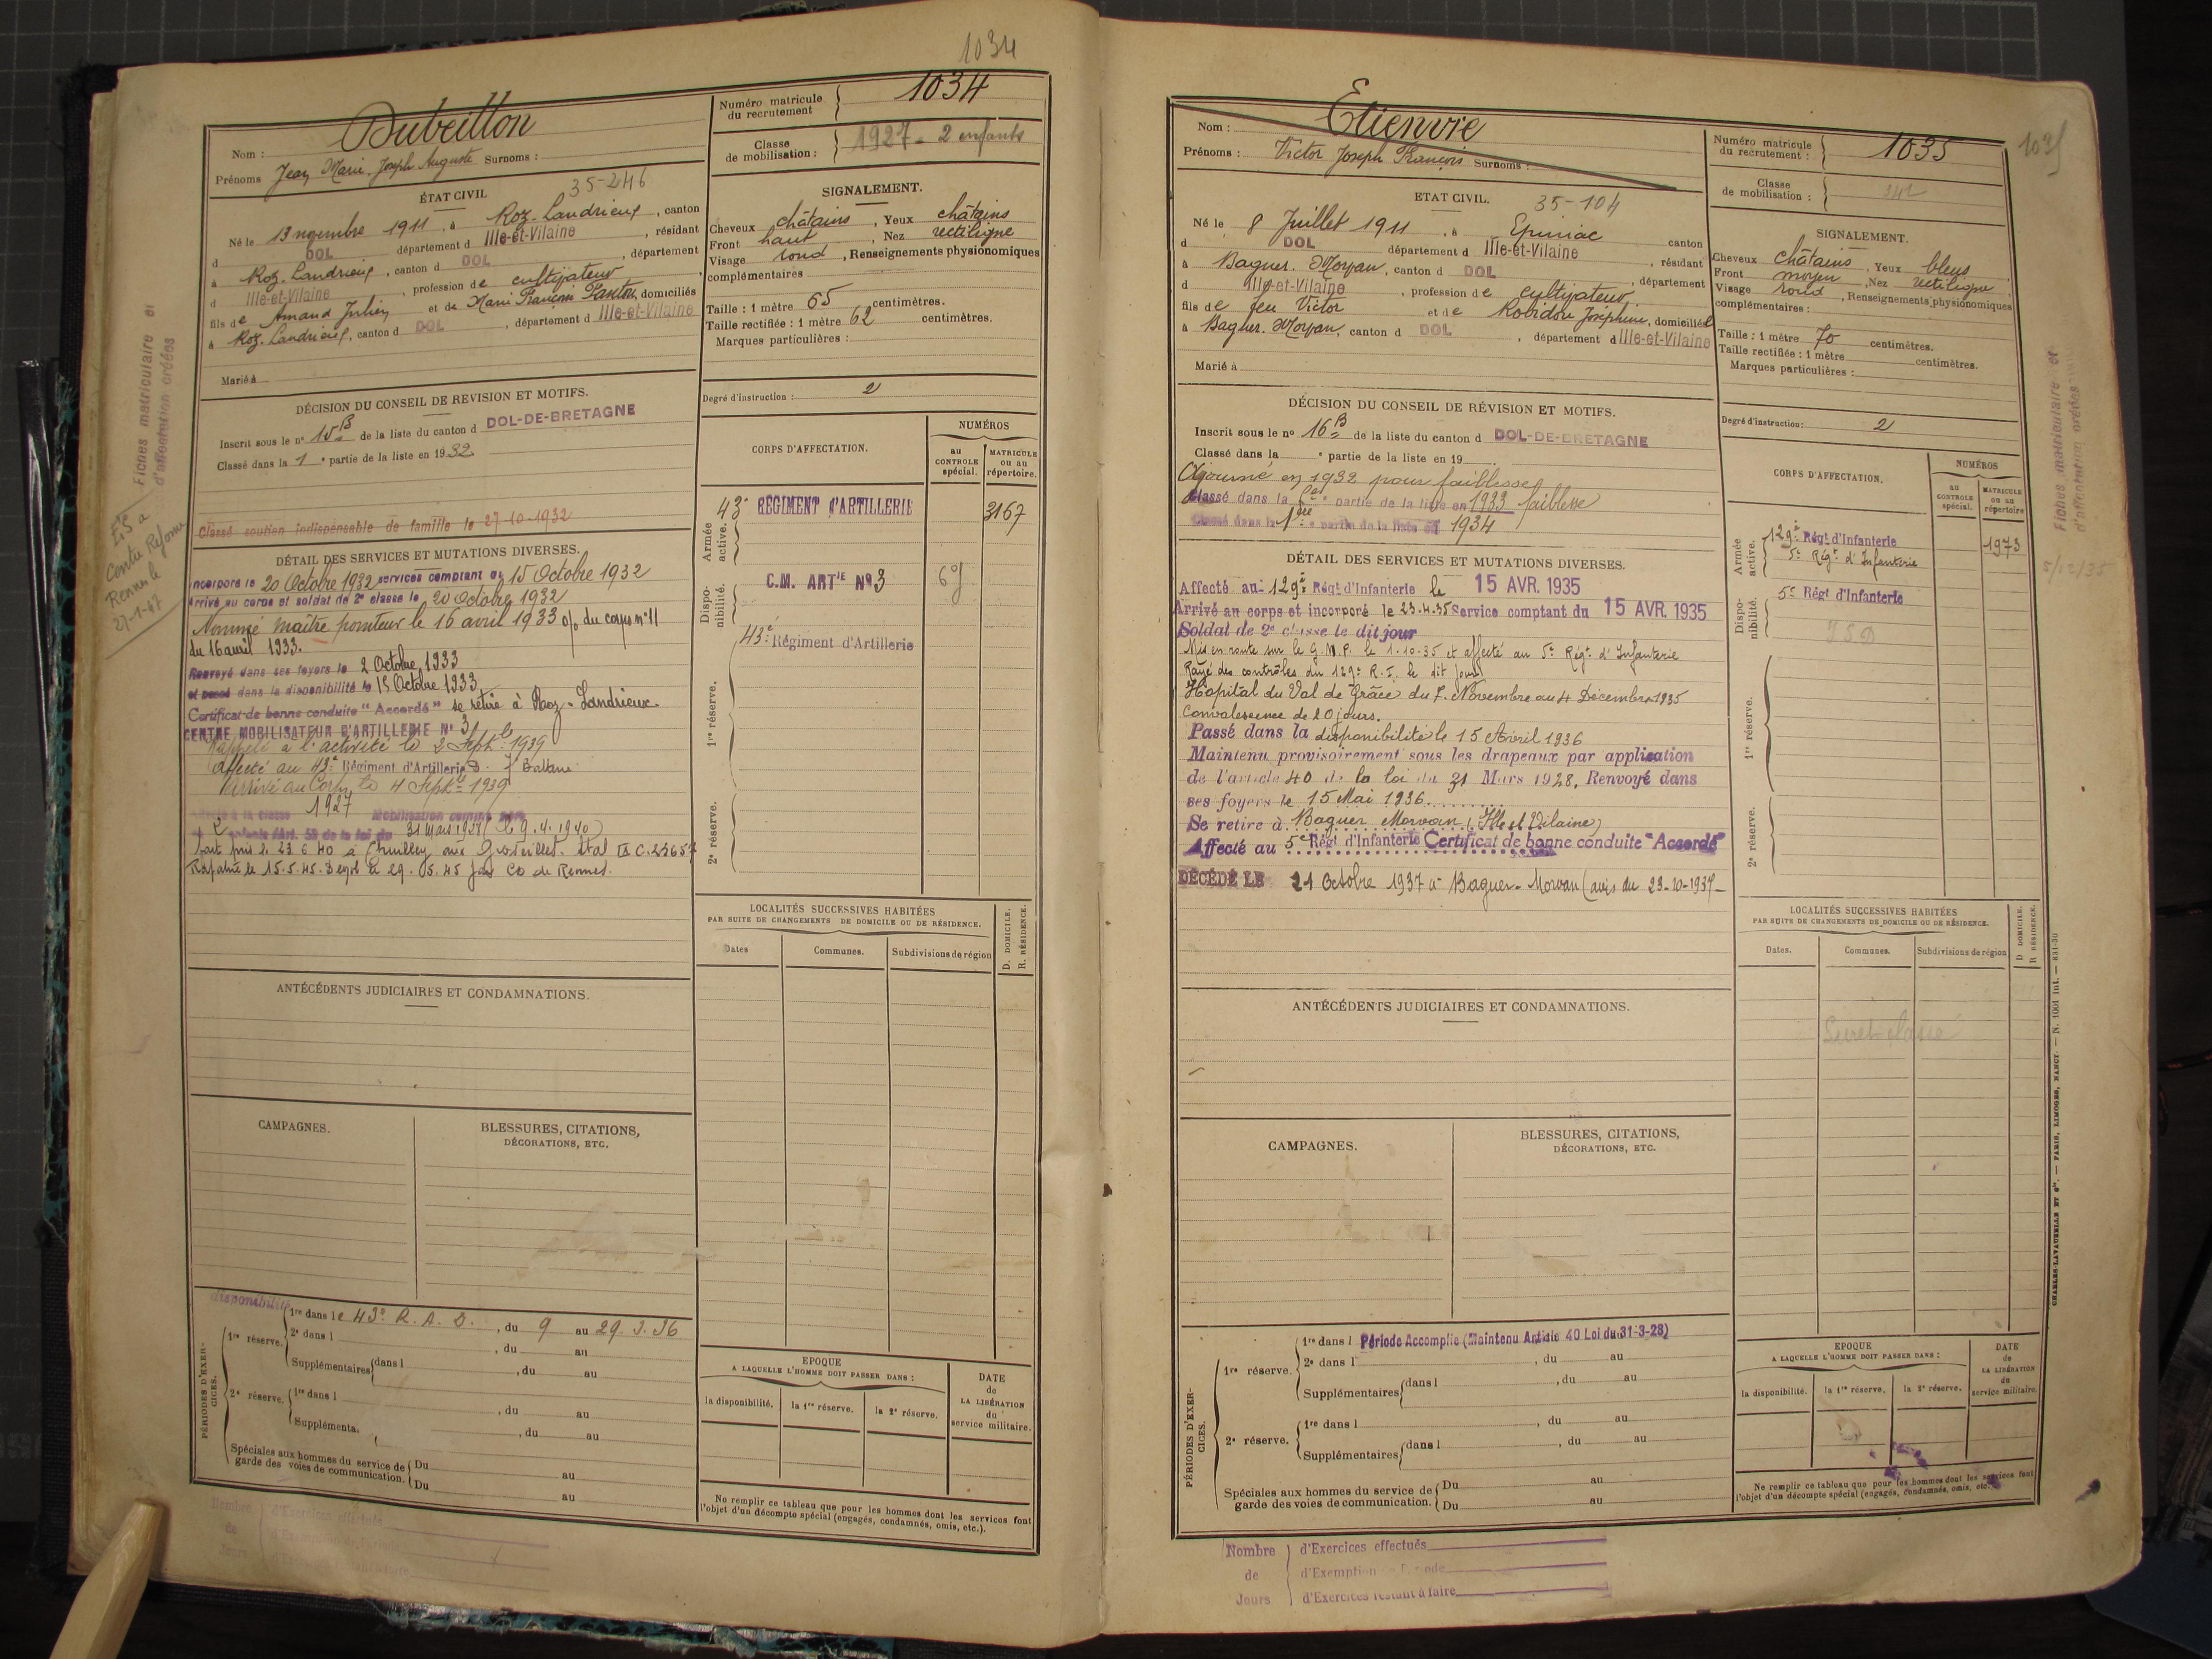 1034
Nom : Dubeillon
Prénoms Jean Marie Joseph Auguste Surnoms :
Numéro matricule du recrutement 1034
Classe de mobilisation : 1927 - 2 enfants
ÉTAT CIVIL
35-246
Né le 13 novembre 1911, à Roz-Landrieux, canton
d DOL département d Ille-et-Vilaine, résidant
à Roz-Landrieux, canton d DOL, département
d Ille-et-Vilaine, profession de cultivateur,
fils de Amand Julien et de Marie Françoise, domiciliés
à Roz-Landrieux, canton d DOL, département d Ille-et-Vilaine
Marié à
SIGNALEMENT.
Cheveux châtains, Yeux châtains
Front haut, Nez rectiligne
Visage rond, Renseignements physionomiques
complémentaires
Taille : 1 mètre 65 centimètres.
Taille rectifiée : 1 mètre 62 centimètres.
Marques particulières :
Degré d'instruction : 2
DÉCISION DU CONSEIL DE REVISION ET MOTIFS.
Inscrit sous le n° 15 B de la liste du canton d DOL-DE-BRETAGNE
Classé dans la 1e partie de la liste en 1932.
Classé soutien indispensable de famille le 27-10-1932
DÉTAIL DES SERVICES ET MUTATIONS DIVERSES.
Incorporé le 20 Octobre 1932 services comptant du 15 Octobre 1932
Arrivé au corps et soldat de 2e classe le 20 Octobre 1932
Nommé maître pointeur le 16 avril 1933 o/ du corps n° 11
du 16 avril 1933.
Renvoyé dans ses foyers le 2 Octobre 1933
et passé dans la disponibilité le 15 Octobre 1933
Certificat de bonne conduite "Accordé" se retire à Roz-Landrieux
CENTRE MOBILISATEUR D'ARTILLERIE N° 31
Rappelé à l'activité le 2 Septbre 1939
Affecté au 43e Régiment d'Artillerie D.
Arrivé au Corps le 4 Septbre 1939
1927 Mobilisation comme père
2 enfants (Art. 58 de la loi du 31 Mars 1928 (le 9.4.1940)
Fait pris. le 23 6 40 à Thuilley aux Groseilles. Stal IX C. 23657
Rapatrié le 15.5.45. Dégagé le 29.05.45 par CD de Rennes.
CORPS D'AFFECTATION.
NUMÉROS
au CONTROLE spécial.
MATRICULE ou au répertoire.
Armée active.
43e RÉGIMENT D'ARTILLERIE 3167
Disponibilité.
C.M. ARTIE N° 3
43e Régiment d'Artillerie
1re réserve.
2e réserve.
LOCALITÉS SUCCESSIVES HABITÉES
PAR SUITE DE CHANGEMENTS DE DOMICILE OU DE RÉSIDENCE.
Dates
Communes.
Subdivisions de région
D. DOMICILE.
R. RÉSIDENCE.
ANTÉCÉDENTS JUDICIAIRES ET CONDAMNATIONS.
CAMPAGNES.
BLESSURES, CITATIONS,
DÉCORATIONS, ETC.
PÉRIODES D'EXERCICES.
disponibilité
1re réserve. 1re dans le 43e R.A.D., du 9 au 29.3.36
2e dans l , du au
Supplémentaires dans l , du au
2e réserve. 1re dans l , du au
Supplémenta. , du au
Spéciales aux hommes du service de garde des voies de communication. Du au
Du au
EPOQUE
A LAQUELLE L'HOMME DOIT PASSER DANS :
la disponibilité.
la 1re réserve.
la 2e réserve.
DATE de LA LIBÉRATION du service militaire.
Ne remplir ce tableau que pour les hommes dont les services font
l'objet d'un décompte spécial (engagés, condamnés, omis, etc.).
Nombre de Jours
d'Exercices effectués
Fiches matriculaire et d'affectation créées
Centre Réforme
Rennes le
27-1-47
1035
Nom : Etienvre
Prénoms : Victor Joseph François Surnoms :
Numéro matricule du recrutement : 1035
Classe de mobilisation :
ETAT CIVIL.
35-104
Né le 8 Juillet 1911, à Epiniac canton
d DOL département d Ille-et-Vilaine, résidant
à Baguer-Morvan, canton d DOL département
d Ille-et-Vilaine, profession de cultivateur,
fils de feu Victor et de Robidou Joséphine, domiciliés
à Baguer-Morvan, canton d DOL, département d Ille-et-Vilaine
Marié à
SIGNALEMENT.
Cheveux châtains, Yeux bleus
Front moyen, Nez rectiligne
Visage rond, Renseignements physionomiques
complémentaires :
Taille : 1 mètre 70 centimètres.
Taille rectifiée : 1 mètre centimètres.
Marques particulières :
Degré d'instruction : 2
DÉCISION DU CONSEIL DE RÉVISION ET MOTIFS.
Inscrit sous le n° 16 B de la liste du canton d DOL-DE-BRETAGNE
Classé dans la e partie de la liste en 19
Ajourné en 1932 pour faiblesse
Classé dans la partie de la liste en 1933 faiblesse
Classé dans la 1ère partie de la liste en 1934
DÉTAIL DES SERVICES ET MUTATIONS DIVERSES.
Affecté au 129e Régt d'Infanterie le 15 AVR. 1935
Arrivé au corps et incorporé le 23.4.35 Service comptant du 15 AVR. 1935
Soldat de 2e classe le dit jour
Mis en route sur le G.M.P. le 1.10.35 et affecté au 5e Régt d'Infanterie
Rayé des contrôles du 129e R.I. le dit jour
Hôpital du Val de Grâce du 7 Novembre au 4 Décembre 1935
Convalescence de 20 jours.
Passé dans la disponibilité le 15 Avril 1936
Maintenu provisoirement sous les drapeaux par application
de l'article 40 de la loi du 31 Mars 1928. Renvoyé dans
ses foyers le 15 Mai 1936.
Se retire à Baguer Morvan (Ille et Vilaine)
Affecté au 5e Régt d'Infanterie Certificat de bonne conduite "Accordé"
DÉCÉDÉ LE 21 Octobre 1937 à Baguer-Morvan (avis du 23-10-1937-
CORPS D'AFFECTATION.
NUMÉROS
AU CONTROLE spécial.
MATRICULE ou au répertoire
Armée active.
129e Régt d'Infanterie 1973
5e Régt d'Infanterie
Disponibilité.
5e Régt d'Infanterie
1re réserve.
2e réserve.
LOCALITÉS SUCCESSIVES HABITÉES
PAR SUITE DE CHANGEMENTS DE DOMICILE OU DE RÉSIDENCE.
Dates.
Communes.
Subdivisions de région
D DOMICILE.
R RÉSIDENCE.
ANTÉCÉDENTS JUDICIAIRES ET CONDAMNATIONS.
CAMPAGNES.
BLESSURES, CITATIONS,
DÉCORATIONS, ETC.
PÉRIODES D'EXERCICES.
1re réserve. 1re dans l Période Accomplie (Maintenu Article 40 Loi du 31-3-28)
2e dans l , du au
Supplémentaires dans l , du au
2e réserve. 1re dans l , du au
Supplémentaires dans l , du au
Spéciales aux hommes du service de garde des voies de communication. Du au
Du au
EPOQUE
A LAQUELLE L'HOMME DOIT PASSER DANS :
la disponibilité.
la 1re réserve.
la 2e réserve.
DATE de LA LIBÉRATION du service militaire.
Ne remplir ce tableau que pour les hommes dont les services font
l'objet d'un décompte spécial (engagés, condamnés, omis, etc.).
Nombre de Jours
d'Exercices effectués
d'Exemption de Période
d'Exercices restant à faire
Fiches matriculaire et d'affectation créées
CHARLES-LAVAUZELLE ET Cie. — PARIS, LIMOGES, NANCY. — N. 1001 int. — 831-30